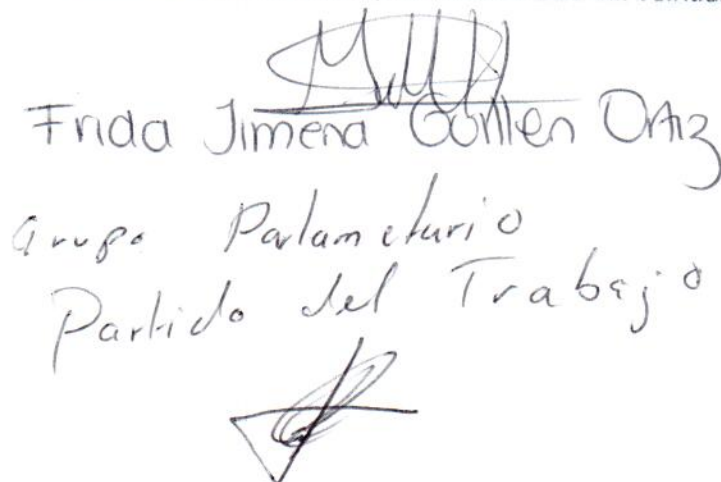 Frida Jimena Guillen Ortiz
Grupo Parlametario
Partido del Trabajo